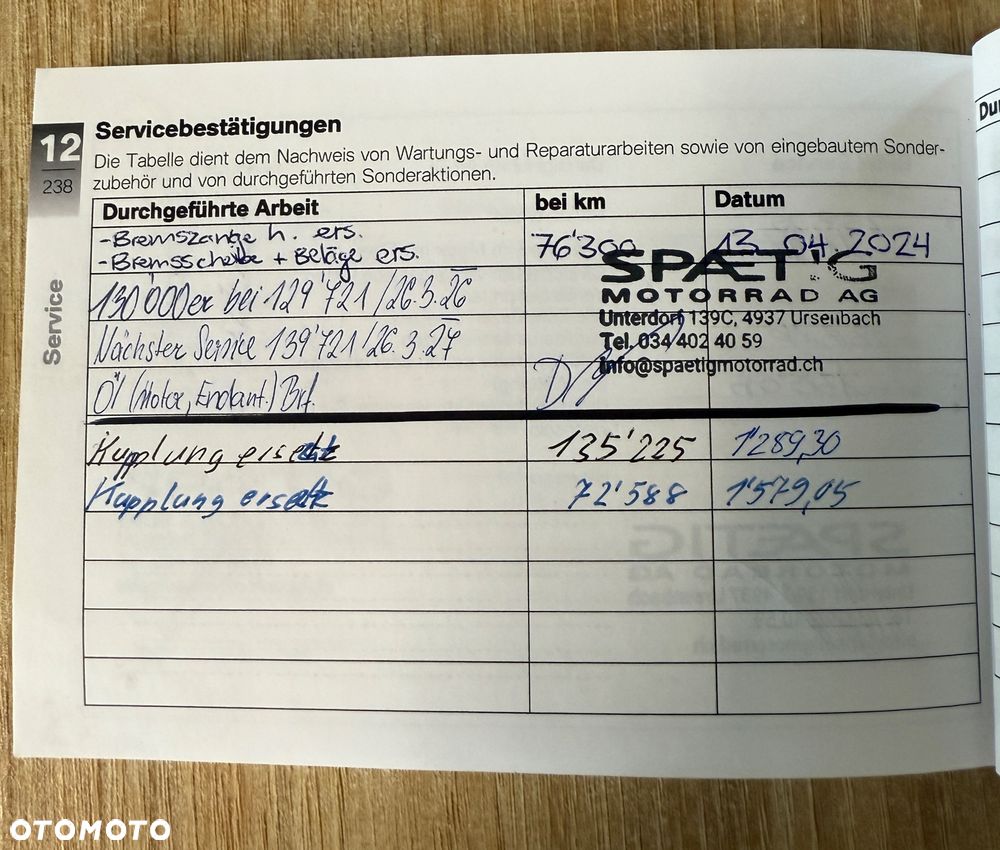 Servicebestätigungen
12
Die Tabelle dient dem Nachweis von Wartungs- und Reparaturarbeiten sowie von eingebautem Sonder-
238
zubehör und von durchgeführten Sonderaktionen.
Durchgeführte Arbeit bei km Datum
-Bremszange h. ers. 76'300 13.04.2024
-Bremsscheibe + Beläge ers.
SPÆTIG
130'000er bei 129'721/26.3.26
MOTORRAD AG
Unterdorf 139C, 4937 Ursenbach
Nächster Service 139'721/26.3.27
Tel. 034 402 40 59
info@spaetigmotorrad.ch
Öl (Motor, Endant.) Brf.
Kupplung ersetzt 135'225 1'289,30
Kupplung ersetzt 72'588 1'579,05
Service
Du
OTOMOTO